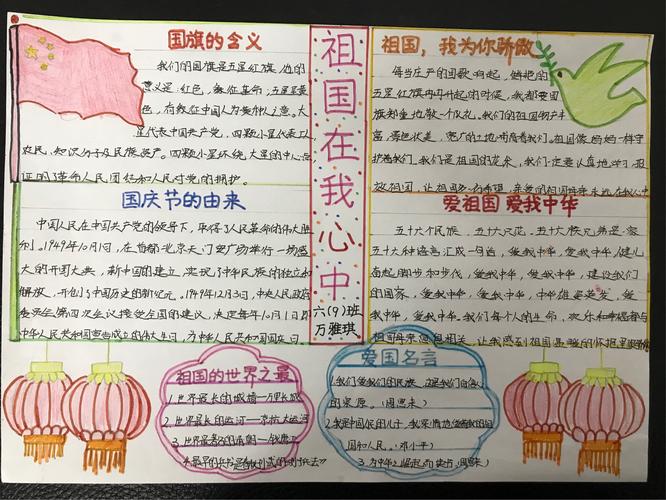 国旗的含义
我们的国旗是五星红旗,它的
意义是:红色,象征革命;五星呈黄
色,有象征中国人为黄种人之意。大
星代表中国共产党,四颗小星代表工人
农民、知识分子及民族资产。四颗小星环绕大星的中心
证明了革命人民团结和人民对党的拥护。
国庆节的由来
中国人民在中国共产党的领导下,取得了人民革命的伟大胜
利。1949年10月1日,在首都北京天安门广场举行一场盛
大的开国大典,新中国的建立,实现了中华民族的独立和
解放,开创了中国历史的新纪元。1949年12月3日,中央人民政府
委员会第四次会议接受全国的建议,决定每年10月1日为
中华人民共和国宣告成立的伟大生日,为中华人民共和国国庆日
祖国在我心中
六(9)班
万雅琪
祖国,我为你骄傲
每当庄严的国歌响起,鲜艳的
五星红旗冉冉升起的时候,我都要国
旗郑重地敬一个礼。我们的祖国物产丰
富,景色优美,宽广的土地哺育着我们。祖国像妈妈一样守
护着我们。我们是祖国的花朵,我们一定要认真地学习,报
效祖国,让祖国
爱祖国 爱我中华
五十六个民族,五十六只花,五十六族兄弟是一家
五十六种语言汇成一句话,爱我中华,爱我中华,健儿
奋起脚步和步伐,爱我中华,爱我中华,建设我们
的国家,爱我中华,爱我中华,中华雄姿英发,爱
我中华,爱我中华,我们每个人的生命,欢乐和幸福都与
祖国母亲息息相关,让我感到祖国温暖的怀抱里
祖国的世界之最
1.世界最长的城墙—万里长城
2.世界最长的运河—京杭大运河
3.世界最
4.最早的兵书《孙子兵法》
爱国名言
1.我们爱我们的民族,这是我们自信心
的泉源。(周恩来)
2.我是中国人民的儿子,我深情地爱着我的祖
国和人民。(邓小平)
3.为中华之崛起而读书(周恩来)